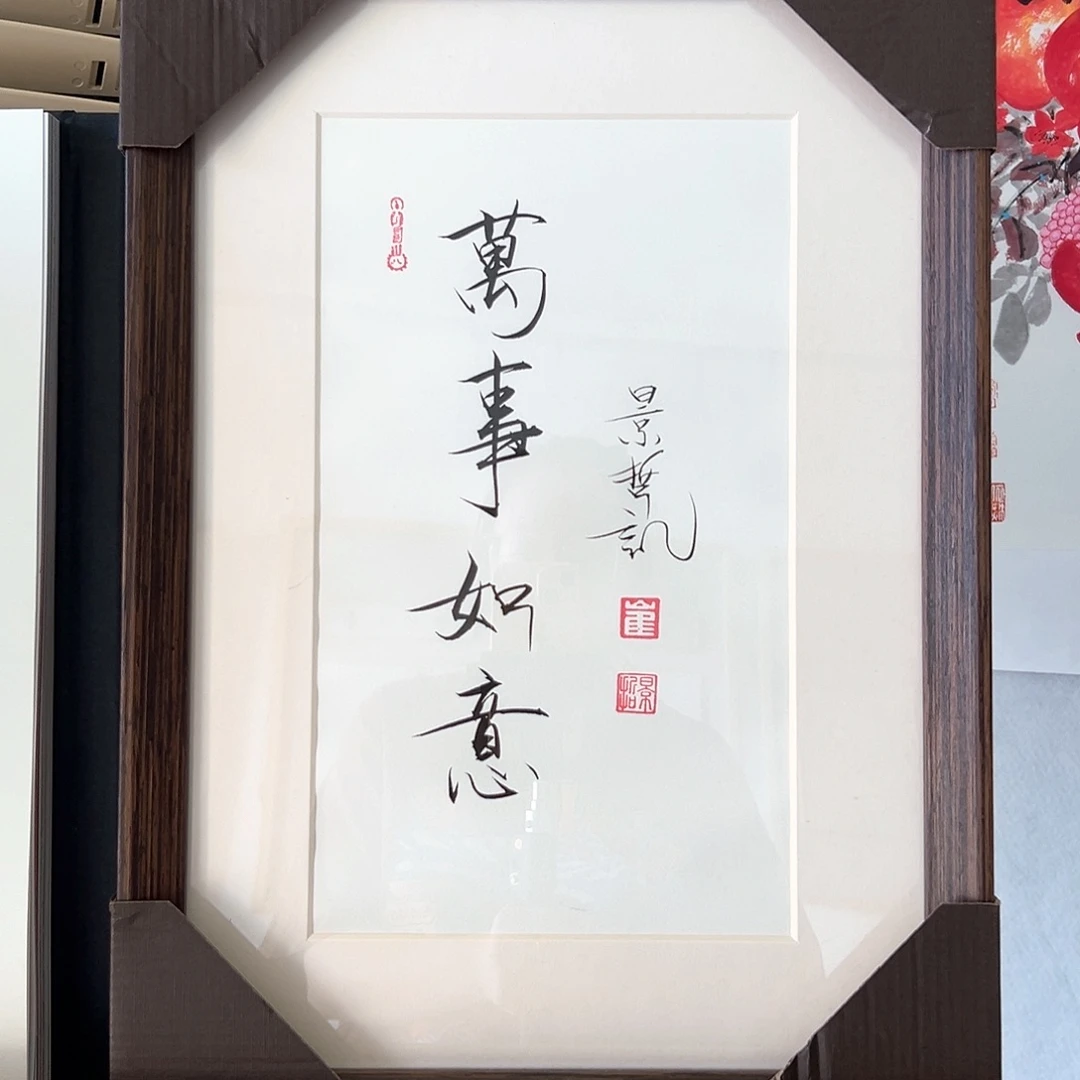 萬事如意
景哲訊
崔
景哲